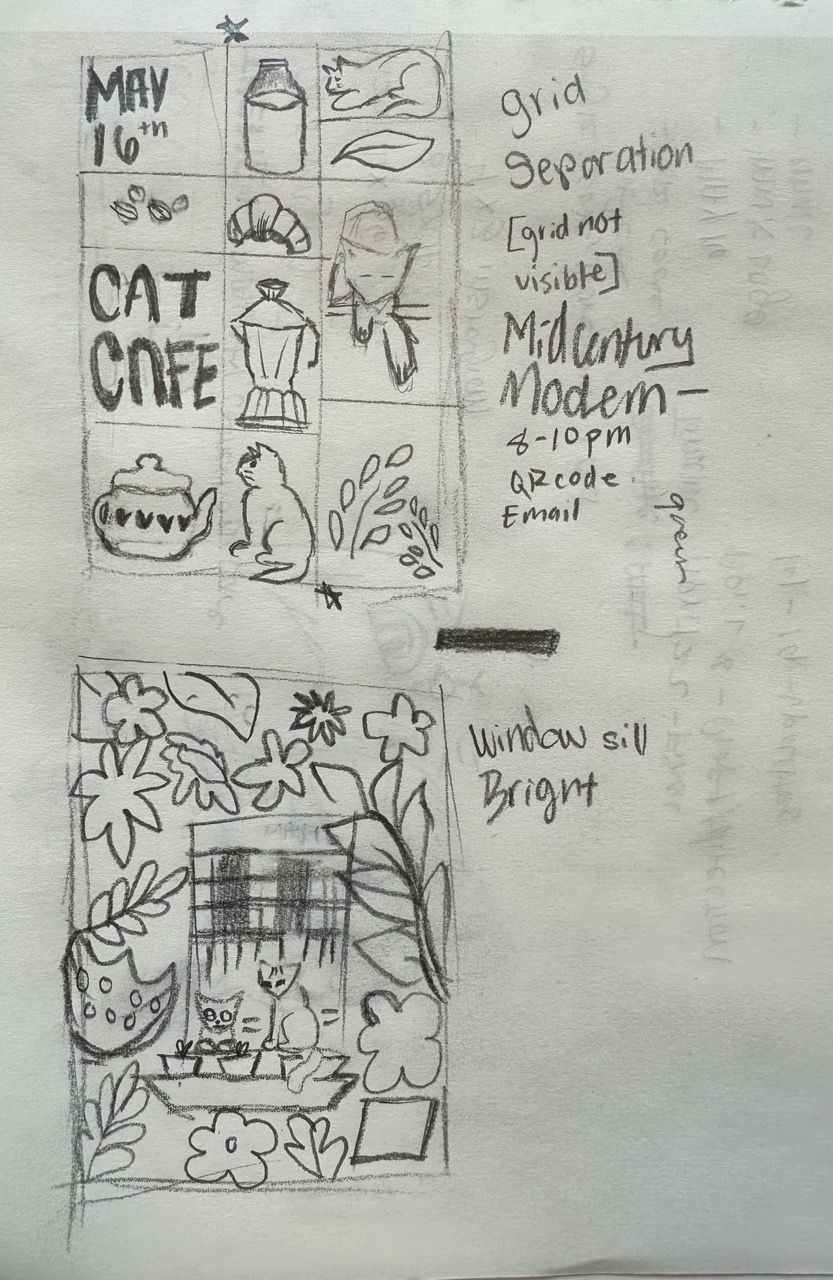 MAY
16th
CAT
CAFE
grid
Separation
[grid not
visible]
Midcentury
Modern—
8-10pm
QR code.
Email
Window sill
Bright